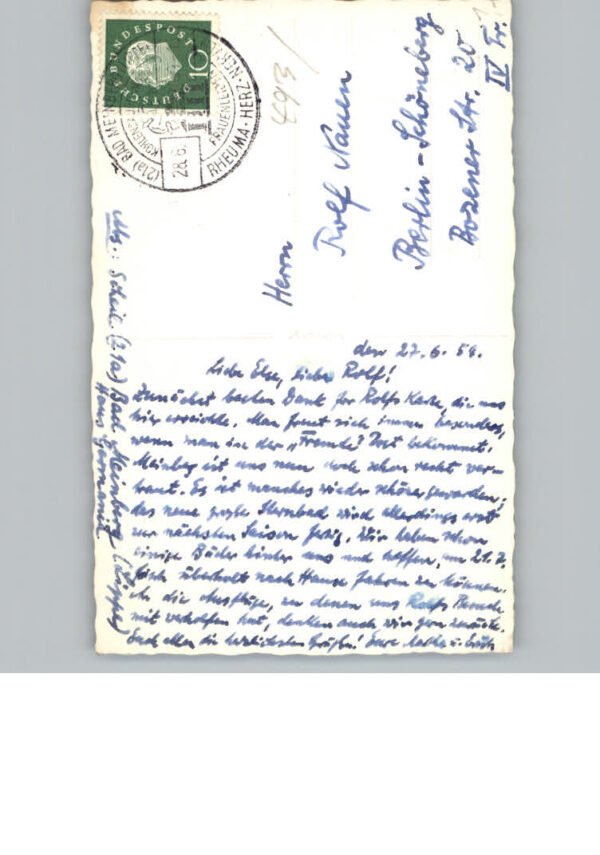 DEUTSCHE BUNDESPOST
10
(21a) BAD MEIN
RHEUMA-HERZ-NERVE
FRAUENLEI
KOHLEN
28.6.
493
Herrn
Rolf Nauen
Berlin-Schöneberg
Bozener Str. 20
IV Tr.
Abs.: Scheil (21a) Bad Meinberg (Lippe)
Haus Germania
den 27.6.59.
Liebe Else, lieber Rolf!
Zunächst besten Dank für Rolfs Karte, die uns
hier erreichte. Man freut sich immer besonders,
wenn man in der „Fremde" Post bekommt.
Meinberg ist uns nun doch schon recht ver-
traut. Es ist manches wieder schöner geworden,
das neue große Sternbad wird allerdings erst
zur nächsten Saison fertig. Wir haben schon
einige Bäder hinter uns und hoffen, am 21.7.
frisch überholt nach Hause fahren zu können.
An die Ausflüge, zu denen uns Rolfs Besuch
mit verholfen hat, denken auch wir gern zurück.
Euch allen die herzlichsten Grüße! Eure